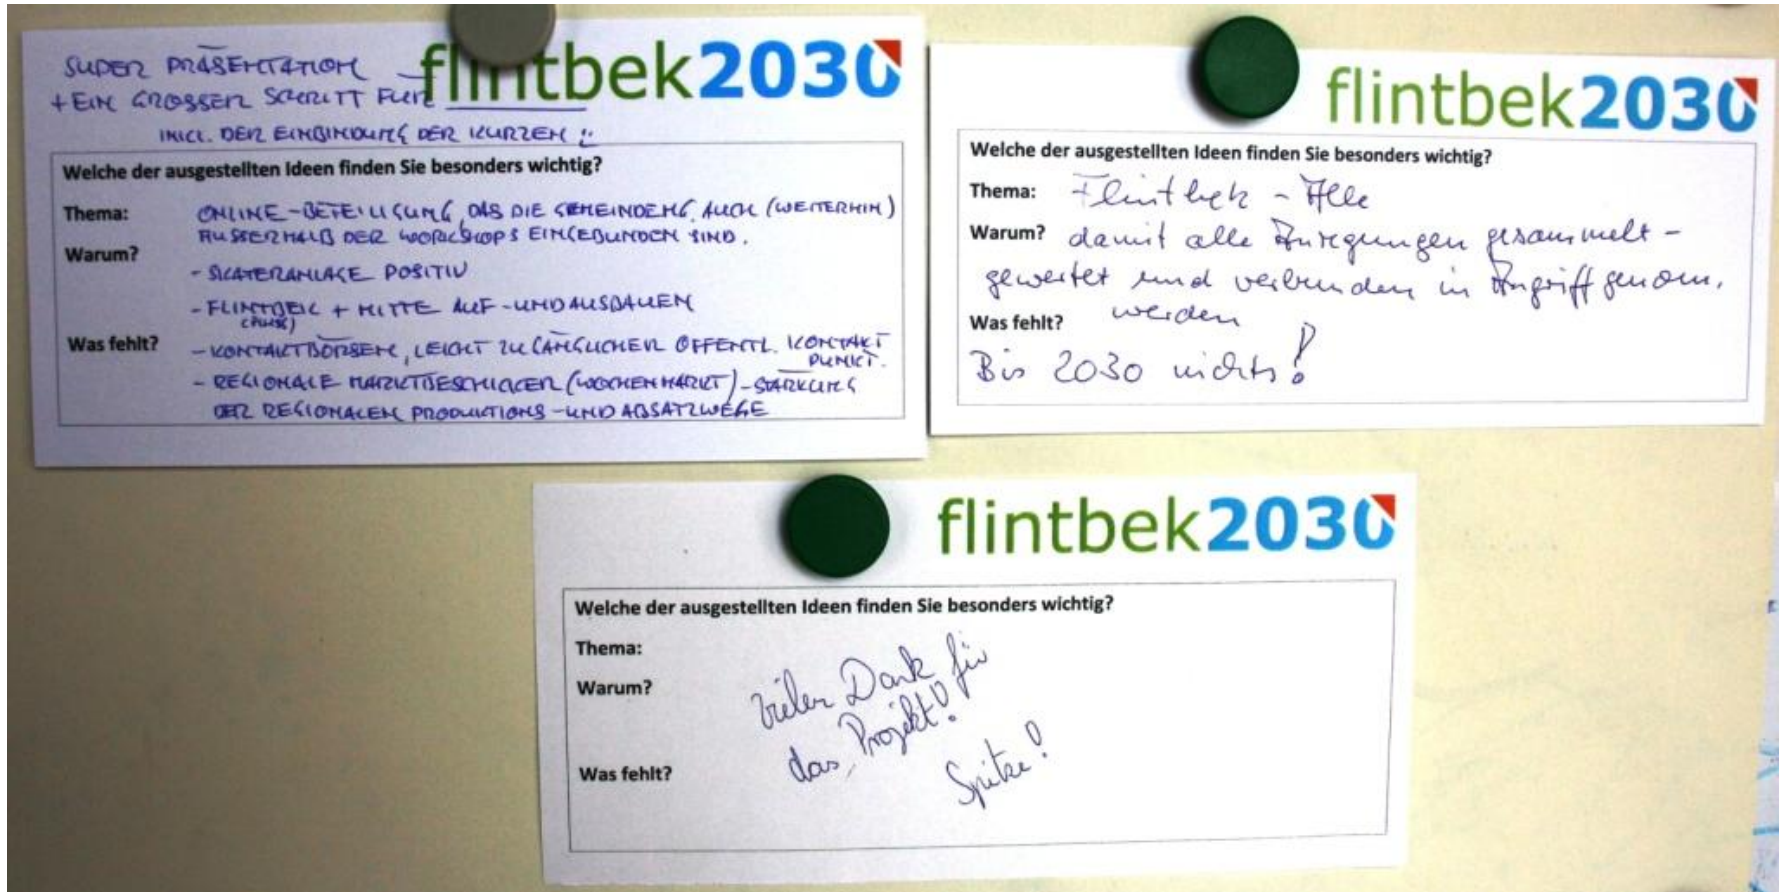 SUPER PRÄSENTATION
+ EIN GROSSER SCHRITT FUER
flintbek2030
INKL. DER EINBINDUNG DER KURZEN !!
Welche der ausgestellten Ideen finden Sie besonders wichtig?
Thema: ONLINE-BETEILIGUNG, DAS DIE GEMEINDEMG. AUCH (WEITERHIN)
AUSSERHALB DER WORKSHOPS EINGEBUNDEN SIND.
Warum?
- SKATERANLAGE POSITIV
- FLINTBEK + MITTE AUF- UND AUSBAUEN
Was fehlt? - KONTAKTBÖRSEN, LEICHT ZUGÄNGLICHER ÖFFENTL. KONTAKT
PUNKT.
- REGIONALE MARKTBESCHICKER (WOCHENMARKT) - STÄRKUNG
DER REGIONALEN PRODUKTIONS- UND ABSATZWEGE
flintbek2030
Welche der ausgestellten Ideen finden Sie besonders wichtig?
Thema: Flintbek - Alle
Warum? damit alle Anregungen gesammelt -
gewertet und verbunden in Angriff genom.
werden
Was fehlt?
Bis 2030 nichts!
flintbek2030
Welche der ausgestellten Ideen finden Sie besonders wichtig?
Thema:
Warum?
Vielen Dank für
das Projekt!
Was fehlt?
Spitze!